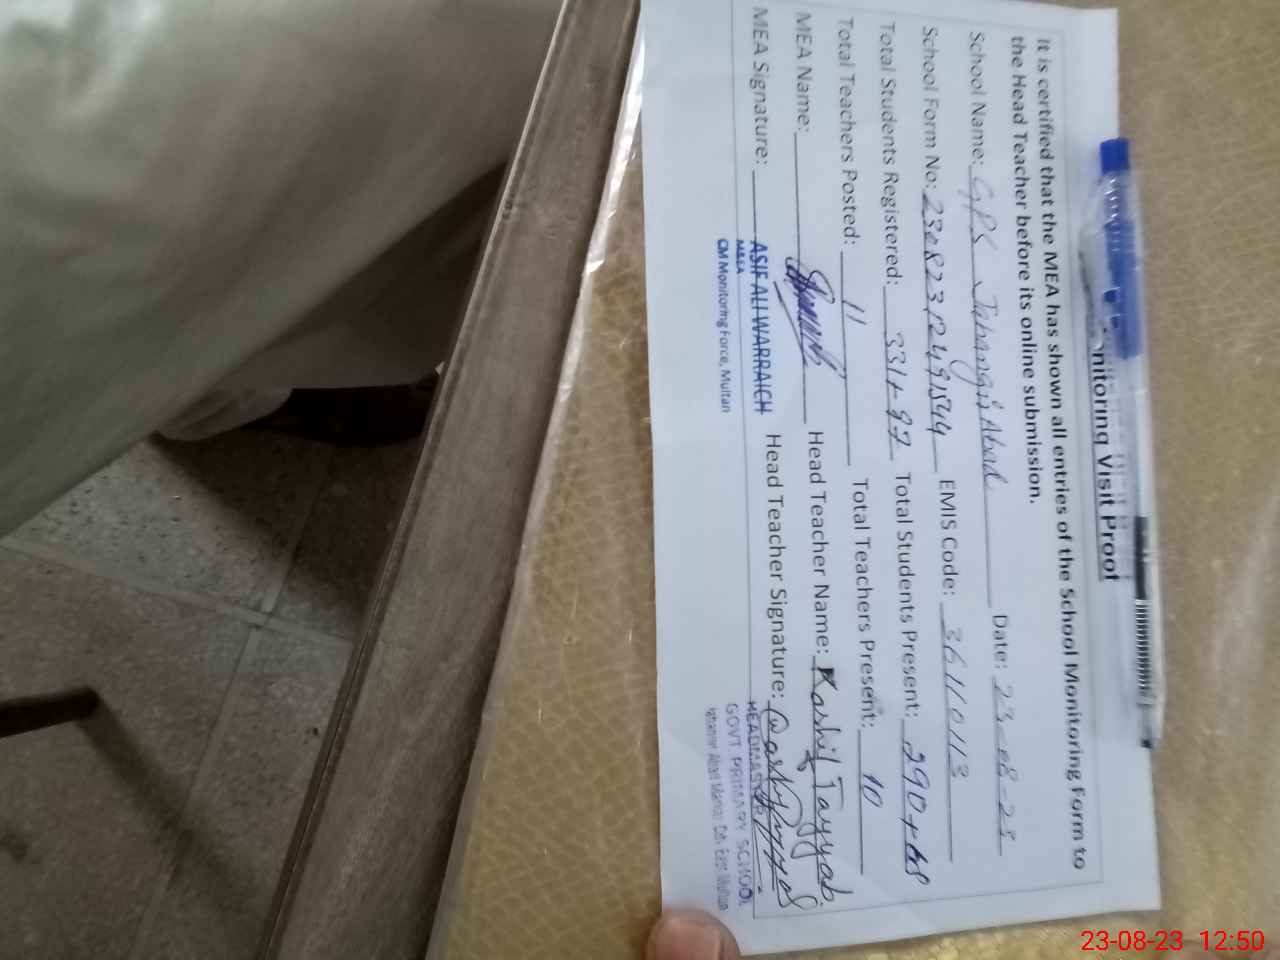 nitoring Visit Proof
It is certified that the MEA has shown all entries of the School Monitoring Form to
the Head Teacher before its online submission.
School Name: GPS Jahangir Abad Date: 23-08-23
School Form No: EMIS Code: 36110113
Total Students Registered: 331+97 Total Students Present: 290+68
Total Teachers Posted: 11 Total Teachers Present: 10
MEA Name: Head Teacher Name: Kashif Tayyab
MEA Signature: ASIF ALI WARRAICH Head Teacher Signature:
M&EA
CM Monitoring Force, Multan
HEADMASTER
GOVT. PRIMARY SCHOOL
23-08-23 12:50